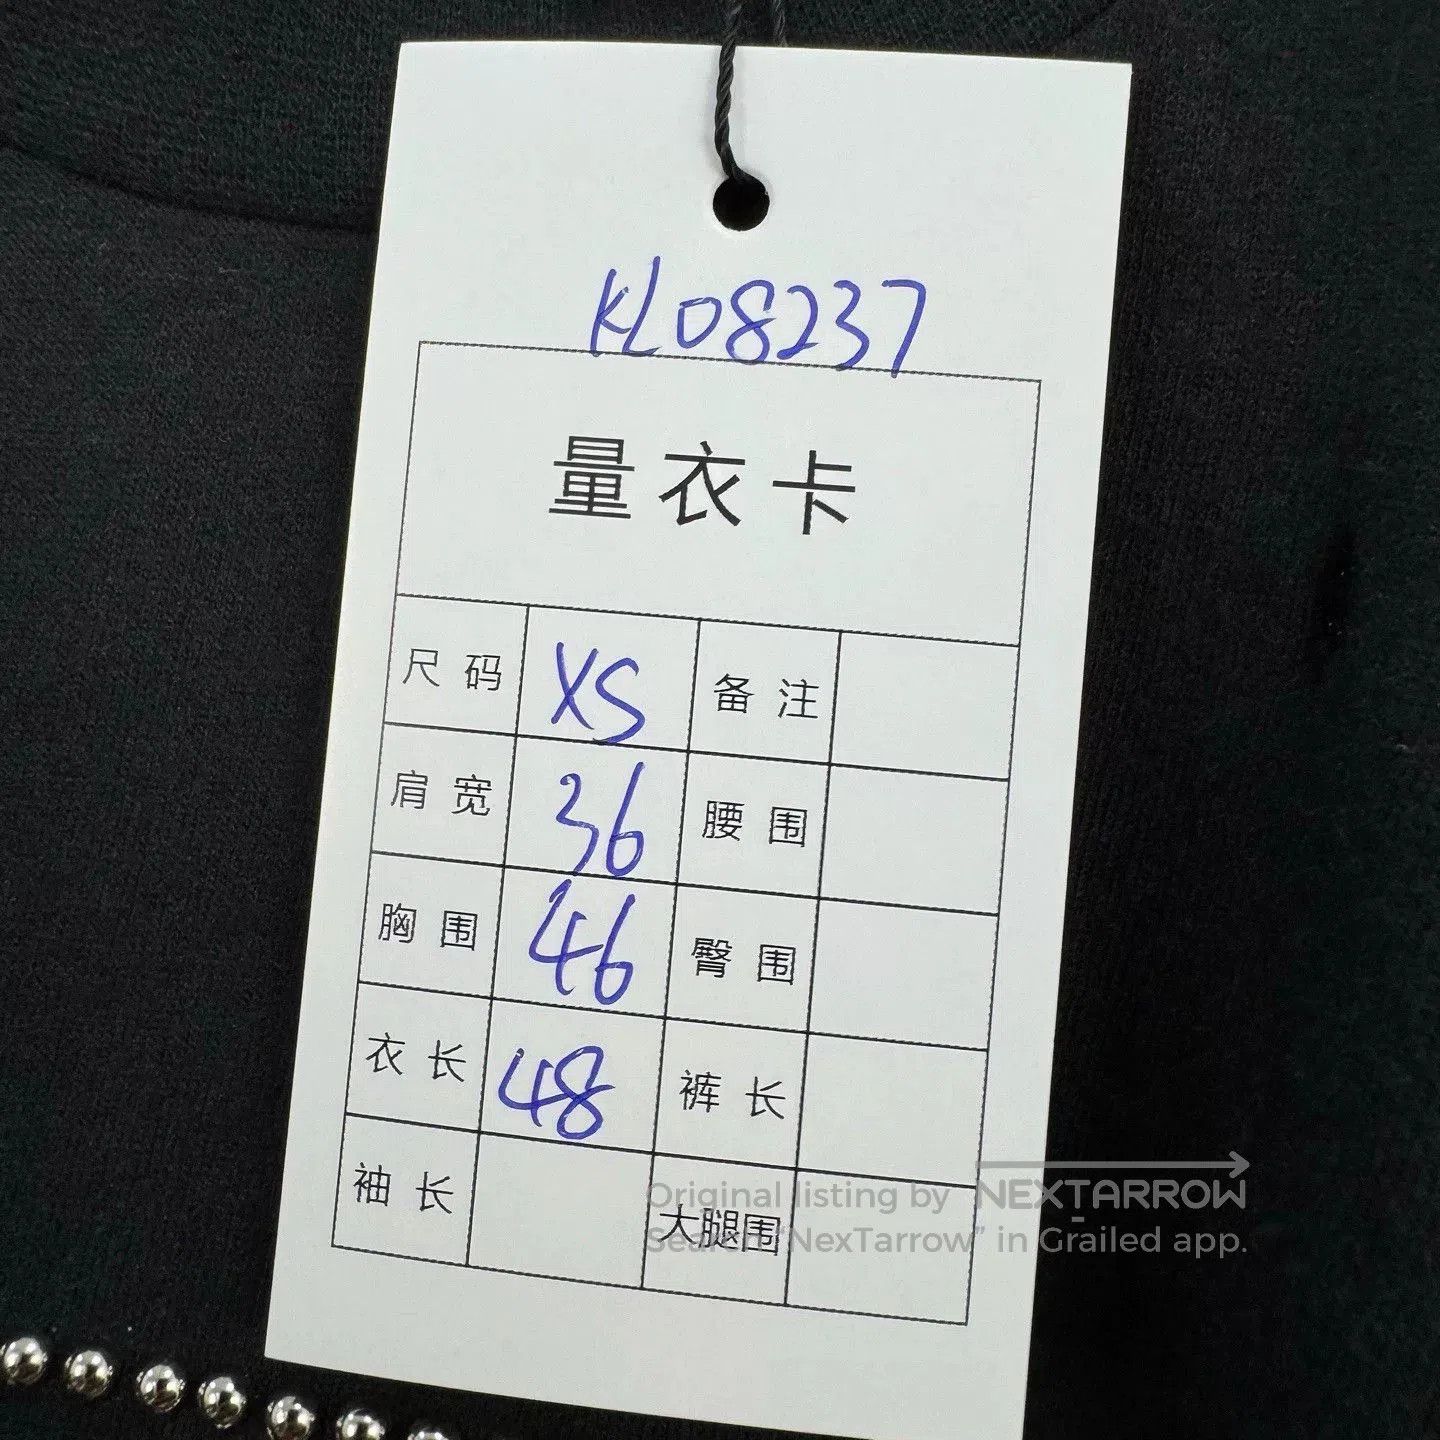 KL08237
量衣卡
尺码 XS 备注
肩宽 36 腰围
胸围 46 臀围
衣长 48 裤长
袖长 大腿围
Original listing by NEXTARROW
Search "NexTarrow" in Grailed app.